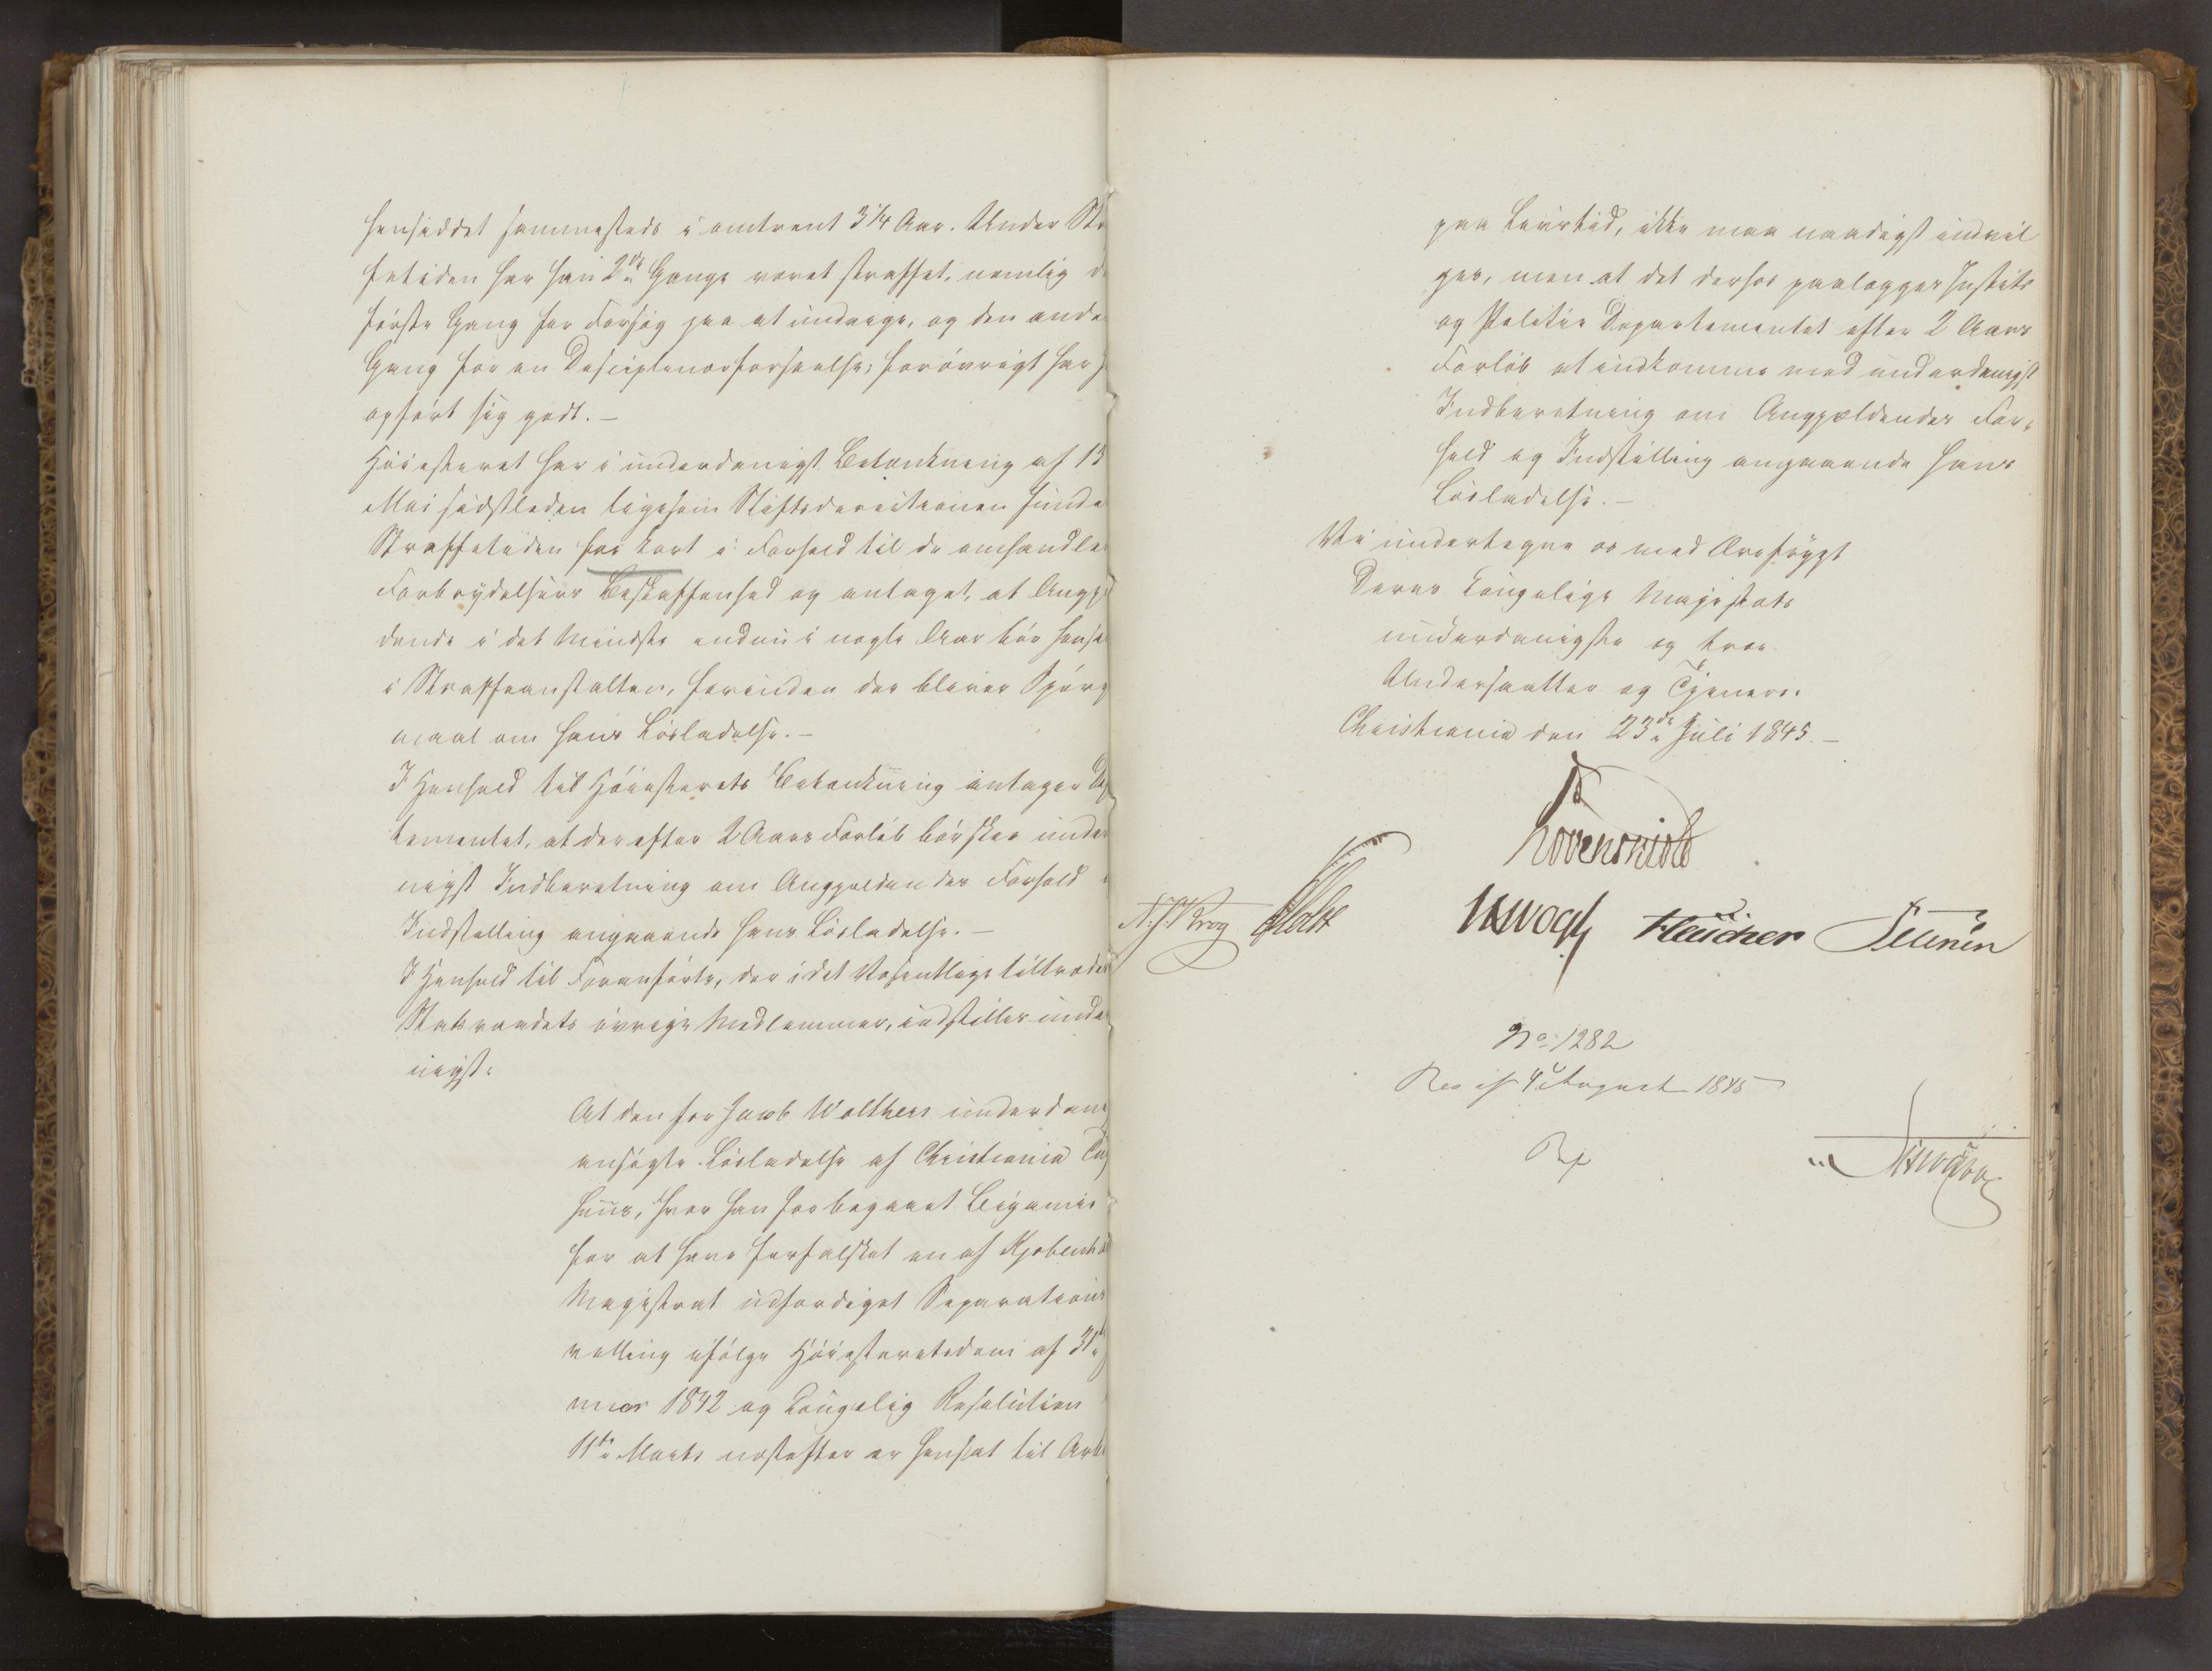 hensiddet sammesteds i omtrent 3 1/4 Aar. Under Stra
fetiden har han 2de Gange været straffet, nemlig d
første Gang for Forsøg paa at undvige, og den ande
Gang for en Disciplinærforseelse; forøvrigt har
opført sig godt. —
Høiesteret har i underdanigst Betænkning af 13
Mai sidstleden ligesom Stiftsdirectionen funde
Straffetiden for kort i Forhold til de omhandle
Forbrydelsers Beskaffenhed og antaget, at Angj
dende i det Mindste endnu i nogle Aar bør hensi
i Strafanstalten, forinden der bliver Spørg
maal om hans Løsladelse. —
I Henhold til Høiesterets Betænkning antager De
tementet, at der efter 2 Aars Forløb bør skee under
nigst Indberetning om Angjeldendes Forhold
Indstilling angaaende hans Løsladelse. —
I Henhold til Foranførte, der i det Væsentlige tiltrædes
Statsraadets øvrige Medlemmer, indstilles unde
nigst:
At den for Jacob Wolthers underdan
ansøgte Løsladelse af Christiania Tug
huus, hvor han for begaaet Bigamie
for at have forfalsket en af Kjøbenha
Magistrat udfærdiget Separations
velling ifølge Høiesteretsdom af 31te
nuar 1842 og Kongelig Resolution
11te Marts næstefter er hensat til Arb
paa Livstid, ikke maa naadigst indvil
ges, men at det derhos paalægges Justits
og Politie Departementet efter 2 Aars
Forløb at indkomme med underdanigst
Indberetning om Angjældendes For-
hold og Indstilling angaaende hans
Løsladelse. —
Vi undertegne os med Ærefrygt
Deres Kongelige Majestæts
underdanigste og troe
Undersaatter og Tjenere.
Christiania den 23de Juli 1845. —
Løvenskiold
N. J. Krog Holst Vogt Fleischer Petersen
No 1282
Res af 4 August 1845